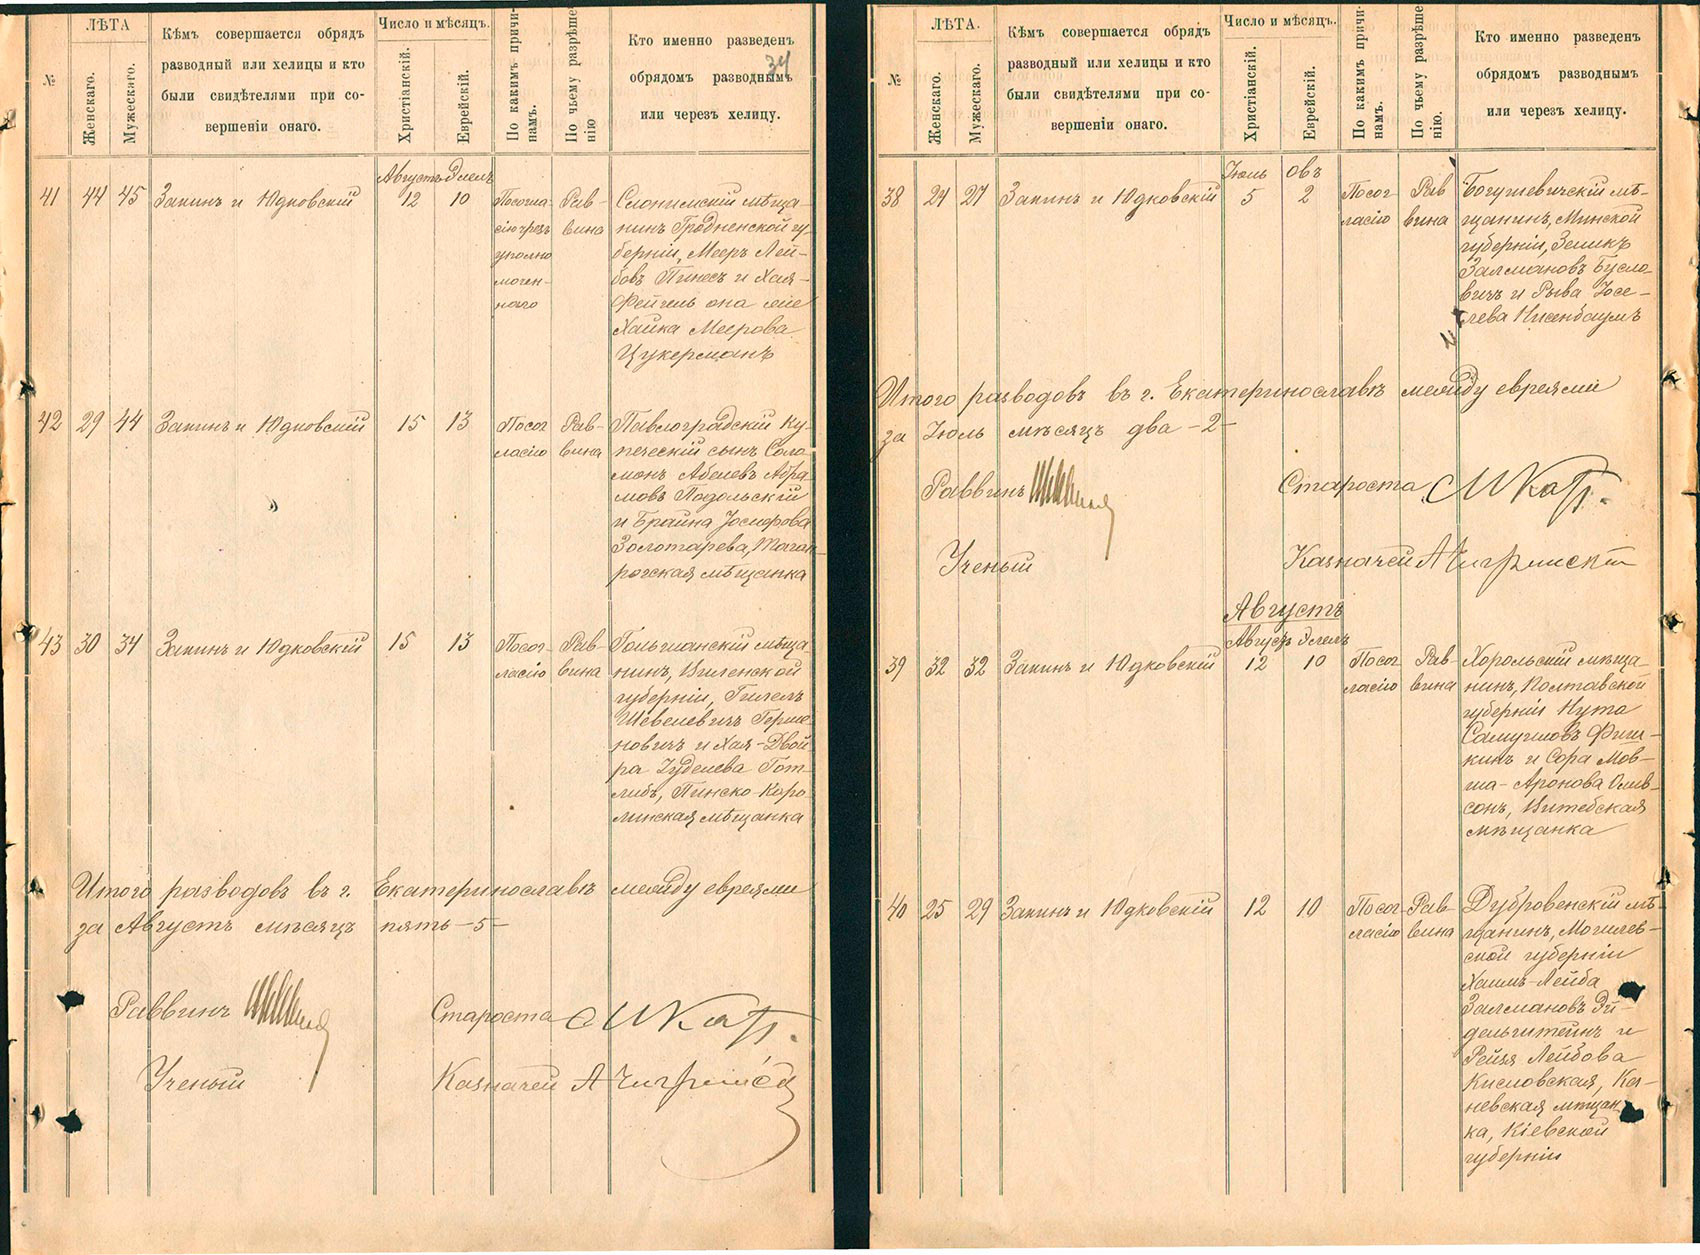 №
ЛѢТА
Женскаго.
Мужескаго.
Кѣмъ совершается обрядъ
разводный или хелицы и кто
были свидѣтелями при со-
вершеніи онаго.
Число и мѣсяцъ.
Христіанскій.
Еврейскій.
По какимъ причи-
намъ.
По чьему разрѣше
нію
Кто именно разведенъ
обрядомъ разводнымъ
или черезъ хелицу.
34
Августъ Элелъ
41 44 45 Закинъ и Юдковскій 12 10
По согла-
сію чрезъ
уполно
мочен-
наго
Рав-
вина
Слонимскій мѣща-
нинъ Гродненской гу
берніи, Мееръ Лей-
бовъ Пинесъ и Хая-
Фейгель она же
Хайка Меерова
Цукерманъ
42 29 44 Закинъ и Юдковскій 15 13
По сог
ласію
Рав-
вина
Павлоградскій ку-
печескій сынъ Соло
монъ Абелевъ Абра
мовъ Подольскій
и Брайна Іосифова
Золотарева, Таган-
рогская мѣщанка
43 30 34 Закинъ и Юдковскій 15 13
По сог-
ласію
Рав-
вина
Гольшанскій мѣща
нинъ, Виленской
губерніи, Гилелъ
Шевелевичъ Герше
новичъ и Хая-Двой
ра Юделева Гот-
либъ, Пинско-Каро-
линская мѣщанка
Итого разводовъ въ г. Екатеринославѣ между евреями
за Августъ мѣсяцъ пять -5-
Раввинъ
Староста М Кацъ.
Ученый
Казначей
№
ЛѢТА.
Женскаго.
Мужескаго.
Кѣмъ совершается обрядъ
разводный или хелицы и кто
были свидѣтелями при со-
вершеніи онаго.
Число и мѣсяцъ.
Христіанскій.
Еврейскій.
По какимъ причи-
намъ.
По чьему разрѣше
нію.
Кто именно разведенъ
обрядомъ разводнымъ
или черезъ хелицу.
Іюль Овъ
38 24 27 Закинъ и Юдковскій 5 2
По сог
ласію
Рав
вина
Богушевичскій мѣ-
щанинъ, Минской
губерніи, Зеликъ
Залмановъ Бусло
вичъ и Рыва Іосе-
лева Нисенбаумъ
Итого разводовъ въ г. Екатеринославѣ между евреями
за Іюль мѣсяцъ два -2-
Раввинъ
Староста М Кацъ.
Ученый
Казначей
Августъ
Августъ Элелъ
39 32 32 Закинъ и Юдковскій 12 10
По сог
ласію
Рав-
вина
Хорольскій мѣща-
нинъ, Полтавской
губерніи Нута
Самуиловъ Фиш-
кинъ и Сора Мов-
ша-Аронова
Витебская
мѣщанка
40 25 29 Закинъ и Юдковскій 12 10
По сог
ласію
Рав-
вина
Дубровенскій мѣ-
щанинъ, Могилев-
ской губерніи
Хаимъ-Лейба
Залмановъ Эй-
дельштейнъ и
Рейзя Лейбова
Кисловская, Ка-
невская мѣщан-
ка, Кіевской
губерніи